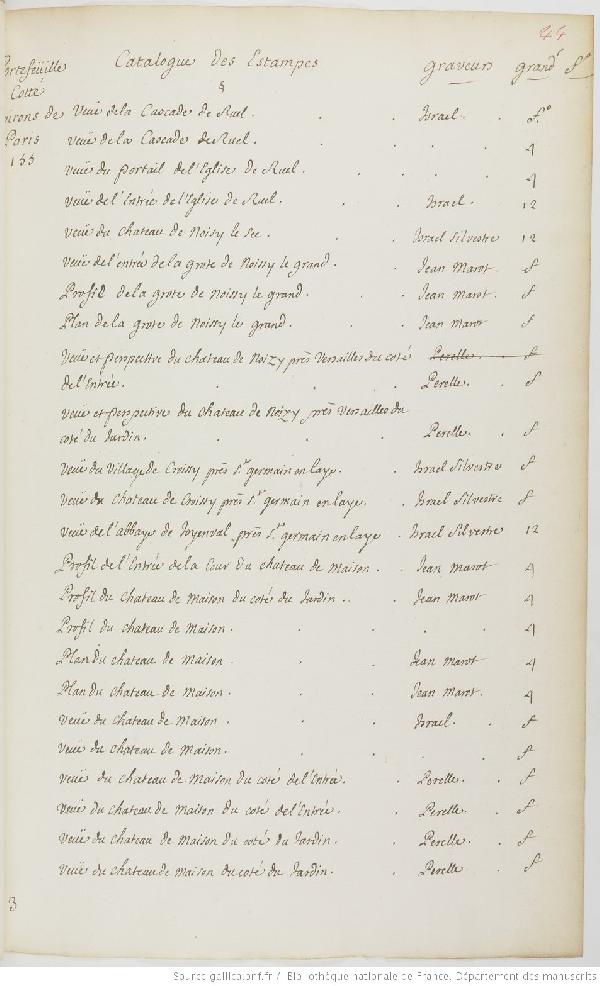 44
Portefeüille Catalogue des Estampes graveurs grandr fo
Cotte §
environs de Veuë de la Cascade de Ruel. Israel. fo
Paris veuë de la Cascade de Ruel. 4
155 veuë du portail de l'Eglise de Ruel. 4
veuë de l'Entrée de l'Eglise de Ruel. Israel. 12
veuë du chateau de Noisy le sec. Israel Silvestre 12
veuë de l'entrée de la grote de Noissy le grand. Jean Marot. f
Profil de la grote de Noissy le grand. Jean Marot. f
Plan de la grote de Noissy le grand. Jean Marot f
Veuë et perspective du chateau de Noizy près Versailles du coté Perelle. f
de l'Entrée. Perelle. f
veuë et perspective du chateau de Noizy près Versailles du
coté du Jardin. Perelle. f
veuë du Village de Croissy près St germain en laye. Israel Silvestre f
veuë du chateau de Croissy près St germain en laye. Israel Silvestre f
veuë de l'abbaye de Joyenval près St germain en laye Israel Silvestre 12
Profil de l'Entrée de la Cour du chateau de Maison. Jean Marot 4
Profil du chateau de Maison du coté du Jardin. Jean Marot 4
Profil du chateau de Maison. 4
Plan du chateau de Maison Jean Marot 4
Plan du chateau de Maison. Jean Marot. 4
veuë du chateau de Maison. Israel. f
veuë du chateau de Maison. f
veuë du chateau de Maison du coté de l'Entrée. Perelle. f
veuë du chateau de Maison du coté de l'Entrée. Perelle. f
veuë du chateau de Maison du coté du Jardin. Perelle. f
veuë du chateau de Maison du coté du Jardin. Perelle. f
3
Source gallica.bnf.fr / Bibliothèque nationale de France. Département des manuscrits